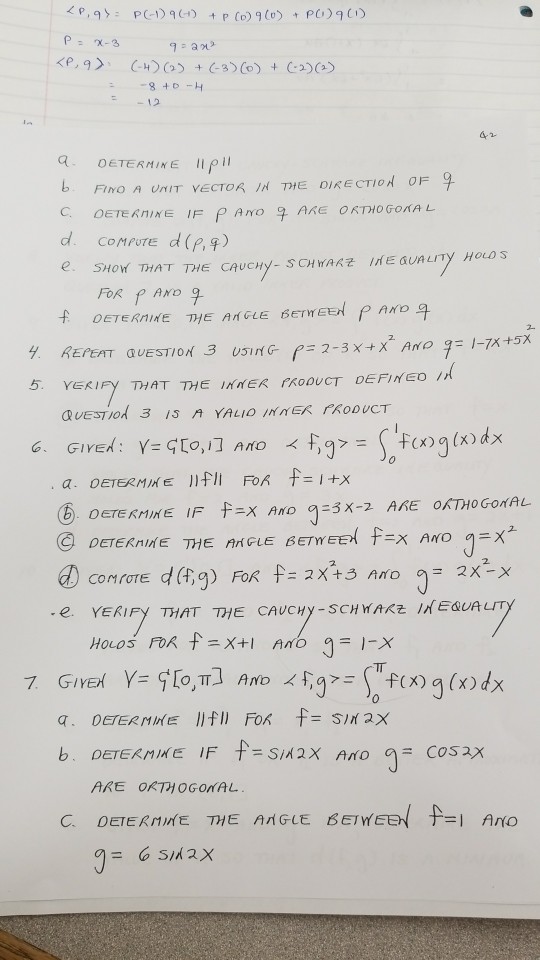 <P,q> = P(-1)q(-1) + P(0)q(0) + P(1)q(1)
P = x-3 q = 2x²
<P,q> : (-4)(2) + (-3)(0) + (-2)(2)
= -8 + 0 - 4
= -12
a. DETERMINE ||p||
b. FIND A UNIT VECTOR IN THE DIRECTION OF q
c. DETERMINE IF p AND q ARE ORTHOGONAL
d. COMPUTE d(p,q)
e. SHOW THAT THE CAUCHY-SCHWARZ INEQUALITY HOLDS
FOR p AND q
f. DETERMINE THE ANGLE BETWEEN p AND q
4. REPEAT QUESTION 3 USING p = 2-3x+x² AND q = 1-7x+5x²
5. VERIFY THAT THE INNER PRODUCT DEFINED IN
QUESTION 3 IS A VALID INNER PRODUCT
6. GIVEN: V = C[0,1] AND <f,g> = ∫₀¹ f(x)g(x)dx
a. DETERMINE ||f|| FOR f = 1+x
b. DETERMINE IF f=x AND g=3x-2 ARE ORTHOGONAL
c. DETERMINE THE ANGLE BETWEEN f=x AND g=x²
d. COMPUTE d(f,g) FOR f = 2x²+3 AND g = 2x²-x
e. VERIFY THAT THE CAUCHY-SCHWARZ INEQUALITY
HOLDS FOR f = x+1 AND g = 1-x
7. GIVEN V = C[0,π] AND <f,g> = ∫₀^π f(x)g(x)dx
a. DETERMINE ||f|| FOR f = SIN2X
b. DETERMINE IF f = SIN2X AND g = COS2X
ARE ORTHOGONAL.
C. DETERMINE THE ANGLE BETWEEN f=1 AND
g = 6 SIN2X